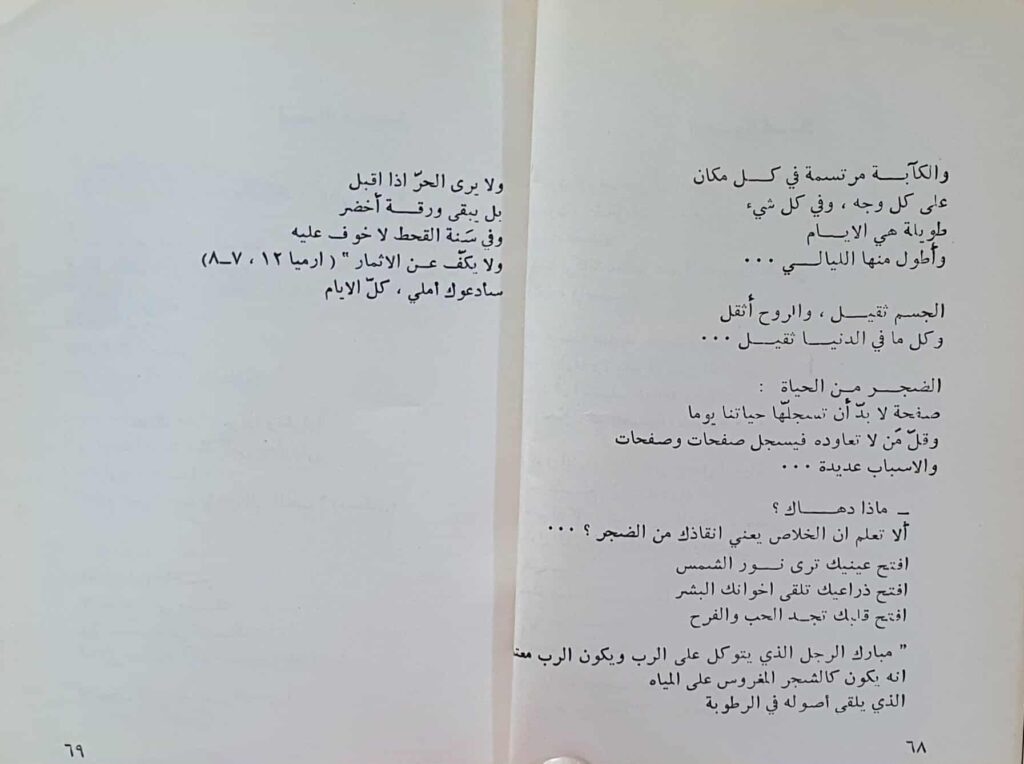 والكآبة مرتسمة في كل مكان
على كل وجه ، وفي كل شيء
طويلة هي الايام
وأطول منها الليالي ...
الجسم ثقيل ، والروح أثقل
وكل ما في الدنيا ثقيل ...
الضجر من الحياة :
صفحة لا بدّ أن تسجلّها حياتنا يوما
وقلّ مَن لا تعاوده فيسجل صفحات وصفحات
والاسباب عديدة ...
ـ ماذا دهاك ؟
ألا تعلم ان الخلاص يعني انقاذك من الضجر ؟ ...
افتح عينيك ترى نور الشمس
افتح ذراعيك تلقى اخوانك البشر
افتح قلبك تجد الحب والفرح
" مبارك الرجل الذي يتوكل على الرب ويكون الرب
انه يكون كالشجر المغروس على المياه
الذي يلقى أصوله في الرطوبة
٦٨
ولا يرى الحرّ اذا اقبل
بل يبقى ورقة أخضر
وفي سَنة القحط لا خوف عليه
ولا يكفّ عن الاثمار " ( ارميا ١٢ ، ٧ـ٨)
سأدعوك أملي ، كلّ الايام
٦٩